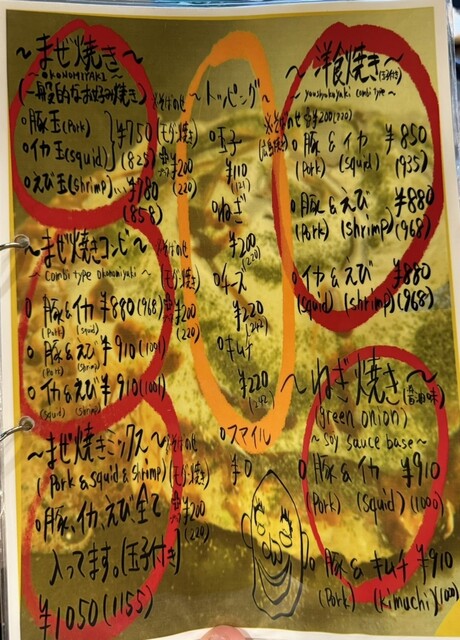 ～まぜ焼き～
OKONOMIYAKI
(一般的なお好み焼き)
○豚玉(pork)
○イカ玉(squid)
¥750
(825)
○えび玉(shrimp)…¥780
(858)
※そばのせ
(モダン焼き)
¥200
(220)
～まぜ焼きコンビ～
～combi type okonomiyaki～
※そばのせ
(モダン焼き)
¥200
(220)
○豚&イカ ¥880(968)
(Pork) (squid)
○豚&えび ¥910(1001)
(Pork) (shrimp)
○イカ&えび ¥910(1001)
(squid) (shrimp)
～まぜ焼きミックス～
(pork & squid & shrimp)
※そばのせ
(モダン焼き)
¥200
(220)
○豚、イカ、えび全て
入ってます。(玉子付き)
¥1050(1155)
～トッピング～
○玉子
¥110
(121)
○ねぎ
¥200
(220)
○チーズ
¥220
(242)
○キムチ
¥220
(242)
○スマイル
¥0
～洋食焼き～(玉子付)
～youshokuyaki combi type～
※そばのせ ¥200(220)
○豚&イカ ¥850
(Pork) (squid) (935)
○豚&えび ¥880
(Pork) (shrimp) (968)
○イカ&えび ¥880
(squid) (shrimp) (968)
～ねぎ焼き～(醤油味)
(green onion)
～soy sauce base～
○豚&イカ ¥910
(Pork) (squid) (1000)
○豚&キムチ ¥910
(Pork) (kimuchi)